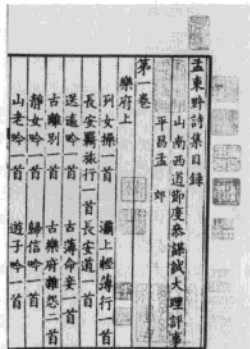 孟東野詩集目錄
山南西道節度參謀試大理評事
平昌孟　郊
第一卷
樂府上
列女操一首　灞上輕薄行一首
長安羈旅行一首　長安道一首
送遠吟一首　古薄命妾一首
古離別一首　古樂府雜怨二首
靜女吟一首　歸信吟一首
山老吟一首　遊子吟一首